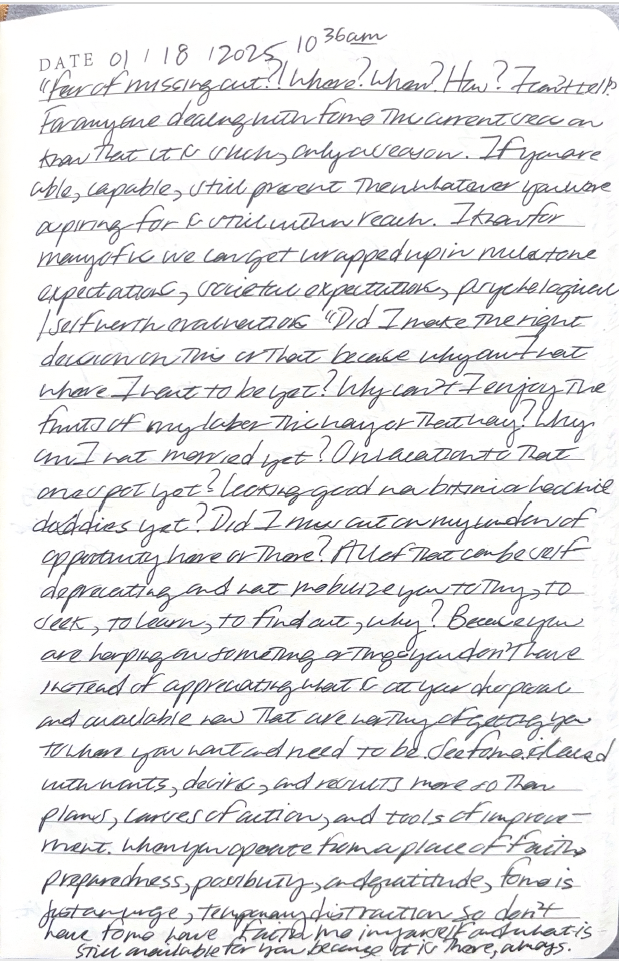 DATE 01 / 18 / 2025 10 36am
"Fear of missing out?! Where? When? How? I can't tell?
For anyone dealing with fomo the current season
know that it is such, only a season. If you are
able, capable, still present then whatever you were
aspiring for is still within reach. I know for
many of us we can get wrapped up in milestone
expectations, societal expectations, psychological
/self worth evaluations "Did I make the right
decision on this or that because why am I not
where I want to be yet? Why can't I enjoy the
fruits of my labor this way or that way? Why
am I not married yet? On vacation to that
one spot yet? Looking good in a bikini or
daddies yet? Did I miss out on my window of
opportunity here or there? All of that can be self
deprecating and not mobilize you to try, to
seek, to learn, to find out, why? Because you
are harping on something or things you don't have
instead of appreciating what is at your disposal
and available now that are worthy of getting you
to where you want and need to be. See fomo is laced
with wants, desires, and results more so than
plans, courses of action, and tools of improve-
ment. When you operate from a place of faith,
preparedness, possibility, and gratitude, fomo is
just an urge, temporary distraction so don't
have fomo have faith in yourself and what is
still available for you because it is there, always.